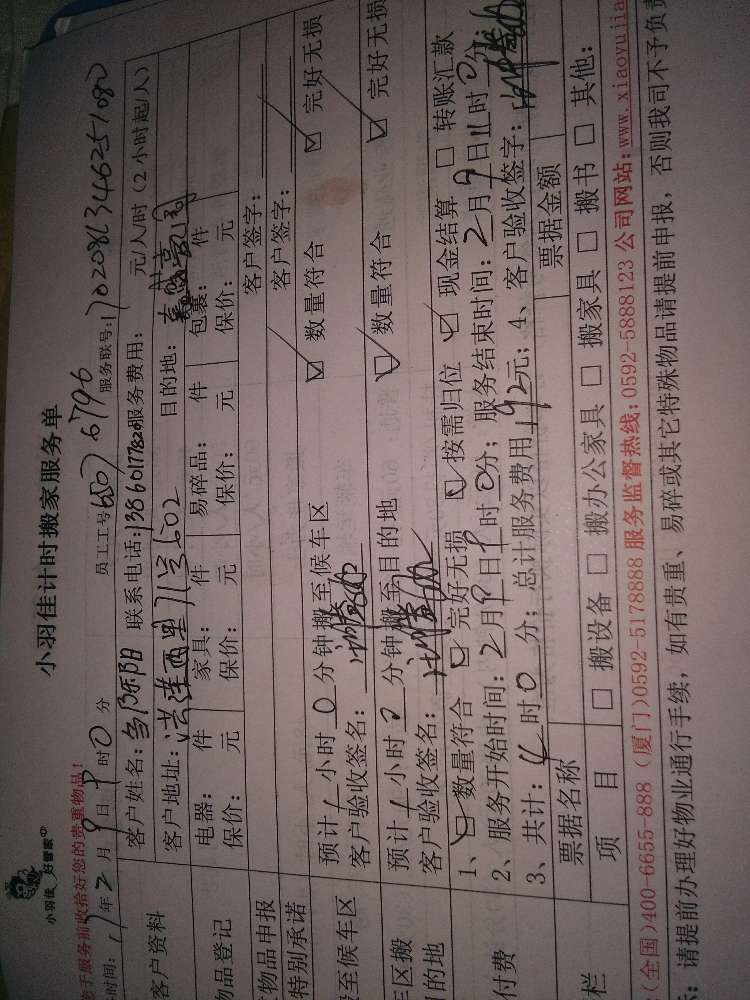 小羽佳 好管家
小羽佳计时搬家服务单
您于服务前收拾好您的贵重物品!
时间: 11年2月9日 时0分 员工工号 服务联号:
客户资料
客户姓名: 联系电话:13860177820服务费用: 元/人/时(2小时起/人)
客户地址: 602 目的地:
物品登记
电器: 件 家具: 件 易碎品: 件 包裹: 件
保价: 元 保价: 元 保价: 元 保价: 元
物品申报 客户签字:
特别承诺 客户签字:
至候车区
预计1小时0分钟搬至候车区 ☑数量符合 ☑完好无损
客户验收签名:
车区搬
目的地
预计1小时0分钟搬至目的地 ☑数量符合 ☑完好无损
客户验收签名:
付费
1、☑数量符合 ☑完好无损 ☑按需归位 ☑现金结算 □转账汇款
2、服务开始时间:2月9日 时0分;服务结束时间:2月9日11时0分
3、共计:4时0分;总计服务费用192元;4、客户验收签字:
栏
票据名称 票据金额
项 目 □搬设备 □搬办公家具 □搬家具 □搬书 □其他:
(全国)400-6655-888 (厦门)0592-5178888 服务监督热线:0592-5888123 公司网站:www.xiaoyujia
:请提前办理好物业通行手续,如有贵重、易碎或其它特殊物品请提前申报,否则我司不予负责